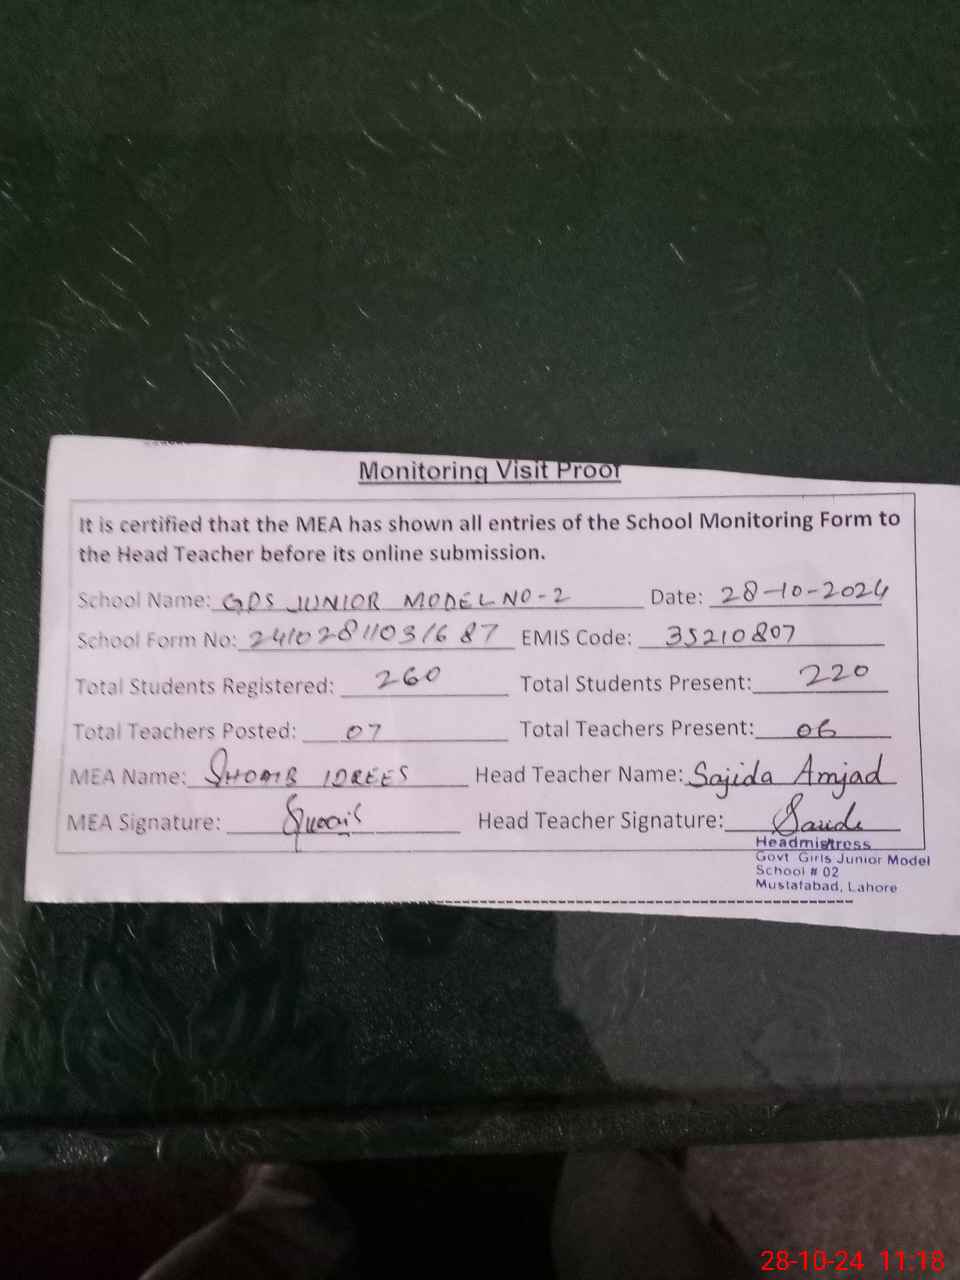 Monitoring Visit Proof
It is certified that the MEA has shown all entries of the School Monitoring Form to
the Head Teacher before its online submission.
School Name: GPS JUNIOR MODEL NO-2 Date: 28-10-2024
School Form No: 24102811031687 EMIS Code: 35210807
Total Students Registered: 260 Total Students Present: 220
Total Teachers Posted: 07 Total Teachers Present: 06
MEA Name: SHOAIB IDREES Head Teacher Name: Sajida Amjad
MEA Signature: Head Teacher Signature:
Headmistress
Govt Girls Junior Model
School # 02
Mustafabad, Lahore
28-10-24 11:18